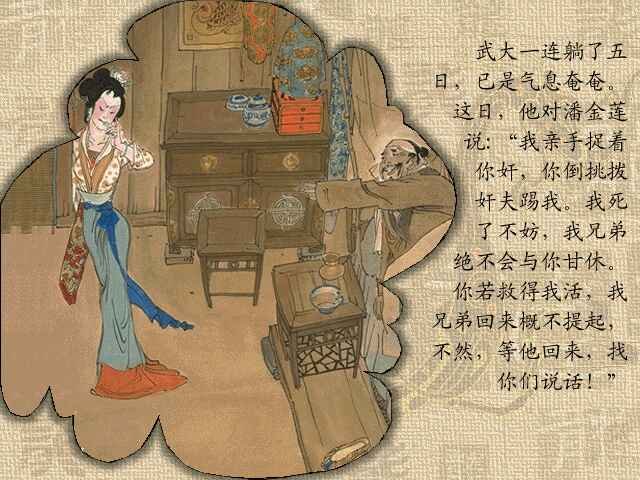 武大一连躺了五
日，已是气息奄奄。
这日，他对潘金莲
说：“我亲手捉着
你奸，你倒挑拨
奸夫踢我。我死
了不妨，我兄弟
绝不会与你甘休。
你若救得我活，我
兄弟回来概不提起，
不然，等他回来，找
你们说话！”